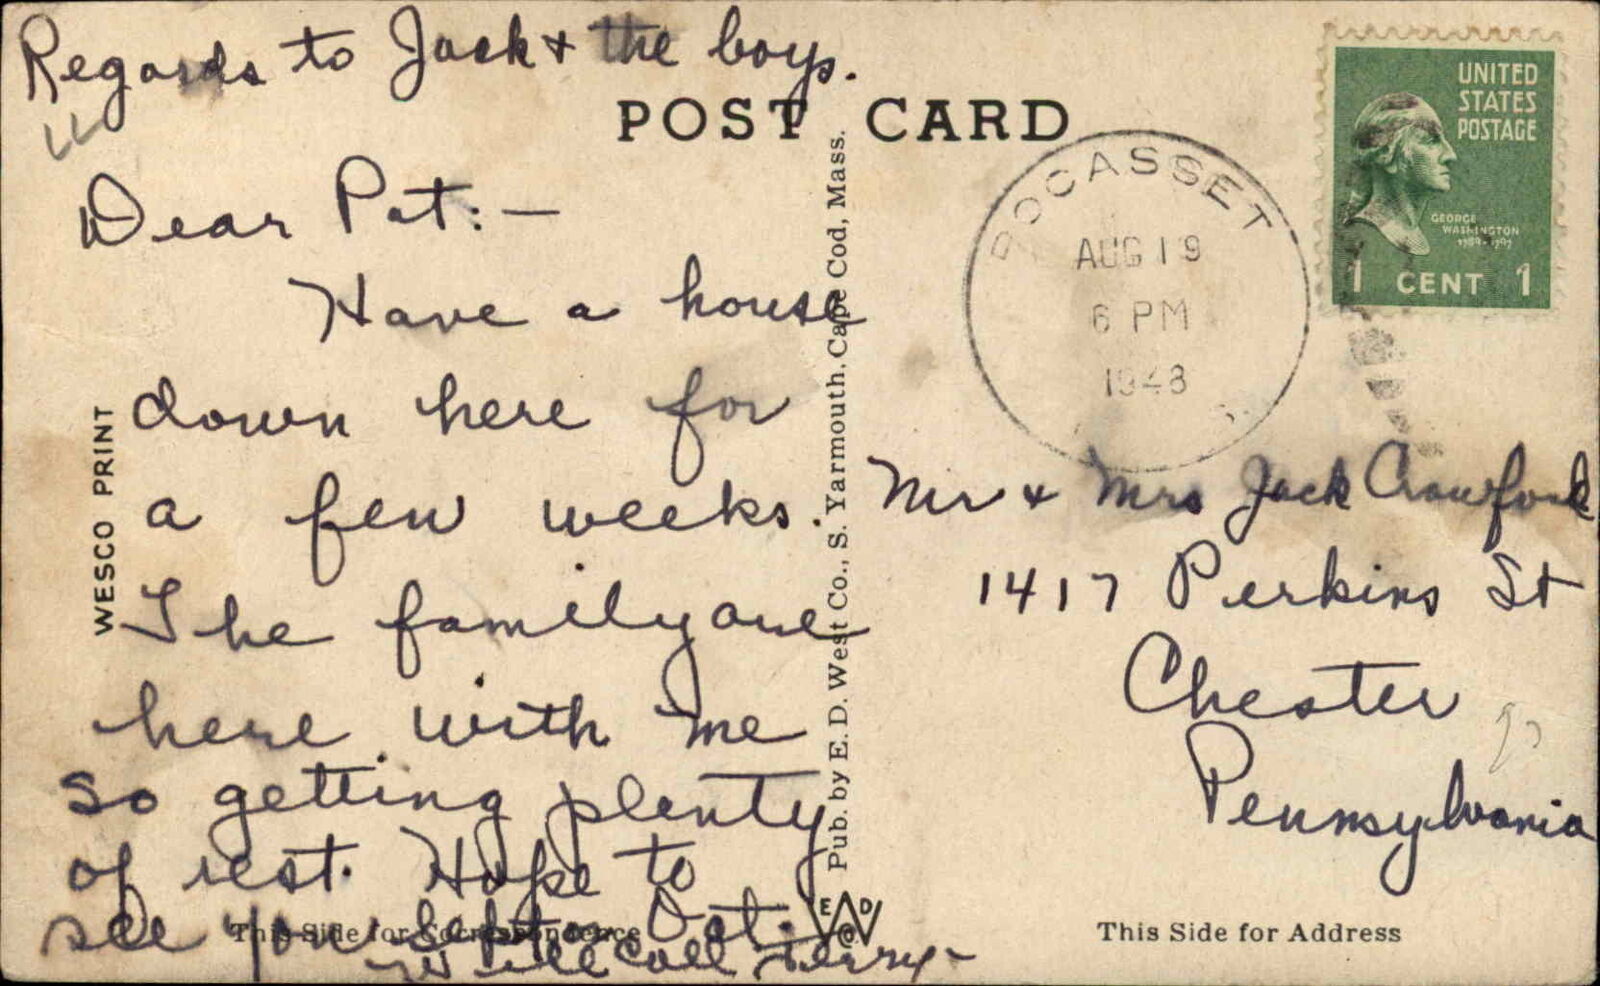 Regards to Jack + the boys.
POST CARD
UNITED
STATES
POSTAGE
GEORGE
WASHINGTON
1789-1797
1 CENT 1
POCASSET
AUG 19
6 PM
1948
Dear Pat:—
Have a house
down here for
a few weeks.
The family are
here with me
so getting plenty
of rest. Hope to
see you Sept or Oct.
Will call Terry-
WESCO PRINT
Pub. by E. D. West Co., S. Yarmouth, Cape Cod, Mass.
Mr + Mrs Jack Crawford
1417 Perkins St
Chester
Pennsylvania
This Side for Correspondence
E W D
This Side for Address